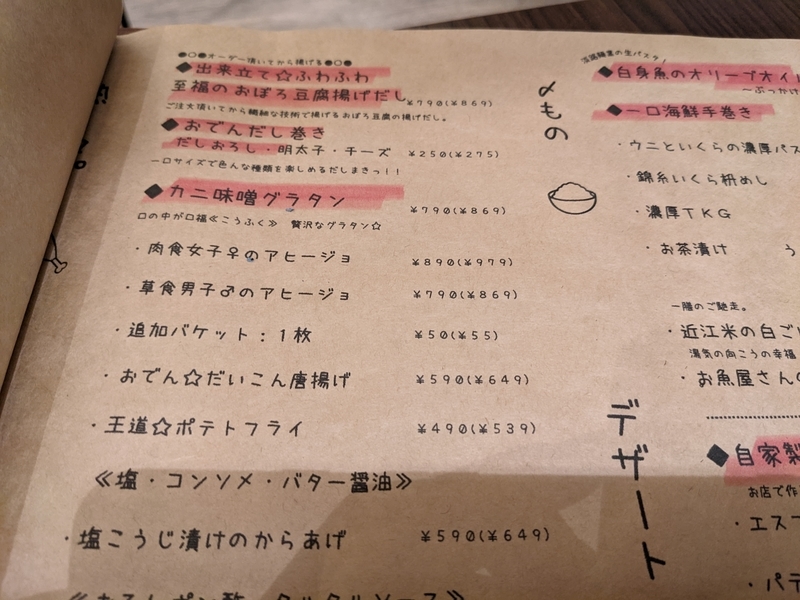 ●○●オーダー頂いてから揚げる●○●
◆出来立て☆ふわふわ
至福のおぼろ豆腐揚げだし ¥790(¥869)
ご注文頂いてから繊細な技術で揚げるおぼろ豆腐の揚げだし。
◆おでんだし巻き
だしおろし・明太子・チーズ ¥250(¥275)
一口サイズで色んな種類を楽しめるだしまきっ!!
◆カニ味噌グラタン ¥790(¥869)
口の中が口福≪こうふく≫ 贅沢なグラタン☆
・肉食女子♀のアヒージョ ¥890(¥979)
・草食男子♂のアヒージョ ¥790(¥869)
・追加バケット:1枚 ¥50(¥55)
・おでん☆だいこん唐揚げ ¥590(¥649)
・王道☆ポテトフライ ¥490(¥539)
≪塩・コンソメ・バター醤油≫
・塩こうじ漬けのからあげ ¥590(¥649)
〆もの
の生パスタ!
◆白身魚のオリーブオイル
～ぶっかけ
◆一口海鮮手巻き
・ウニといくらの濃厚パス
・錦糸いくら枡めし
・濃厚TKG
・お茶漬け う
一膳のご馳走。
・近江米の白ご
湯気の向こうの幸福
・お魚屋さんの
デザート
◆自家製
お店で作
・エスプ
・パテ